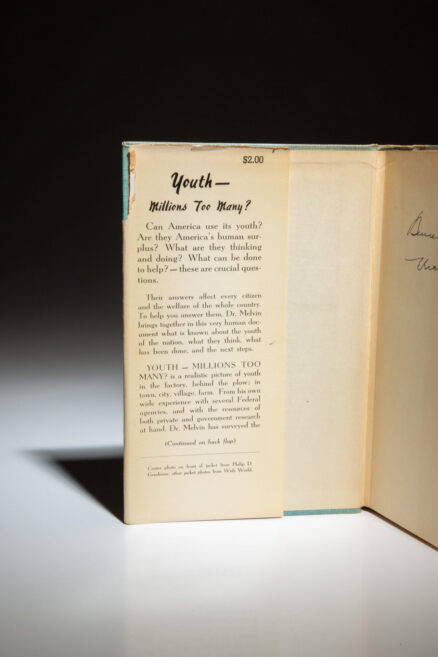 $2.00
Youth—
Millions Too Many?
Can America use its youth?
Are they America's human sur-
plus? What are they thinking
and doing? What can be done
to help? — these are crucial ques-
tions.
Their answers affect every citizen
and the welfare of the whole country.
To help you answer them, Dr. Melvin
brings together in this very human doc-
ument what is known about the youth
of the nation, what they think, what
has been done, and the next steps.
YOUTH — MILLIONS TOO
MANY? is a realistic picture of youth
in the factory, behind the plow; in
town, city, village, farm. From his own
wide experience with several Federal
agencies, and with the resources of
both private and government research
at hand, Dr. Melvin has surveyed the
(Continued on back flap)
Center photo on front of jacket from Philip D.
Gendreau; other jacket photos from Wide World.